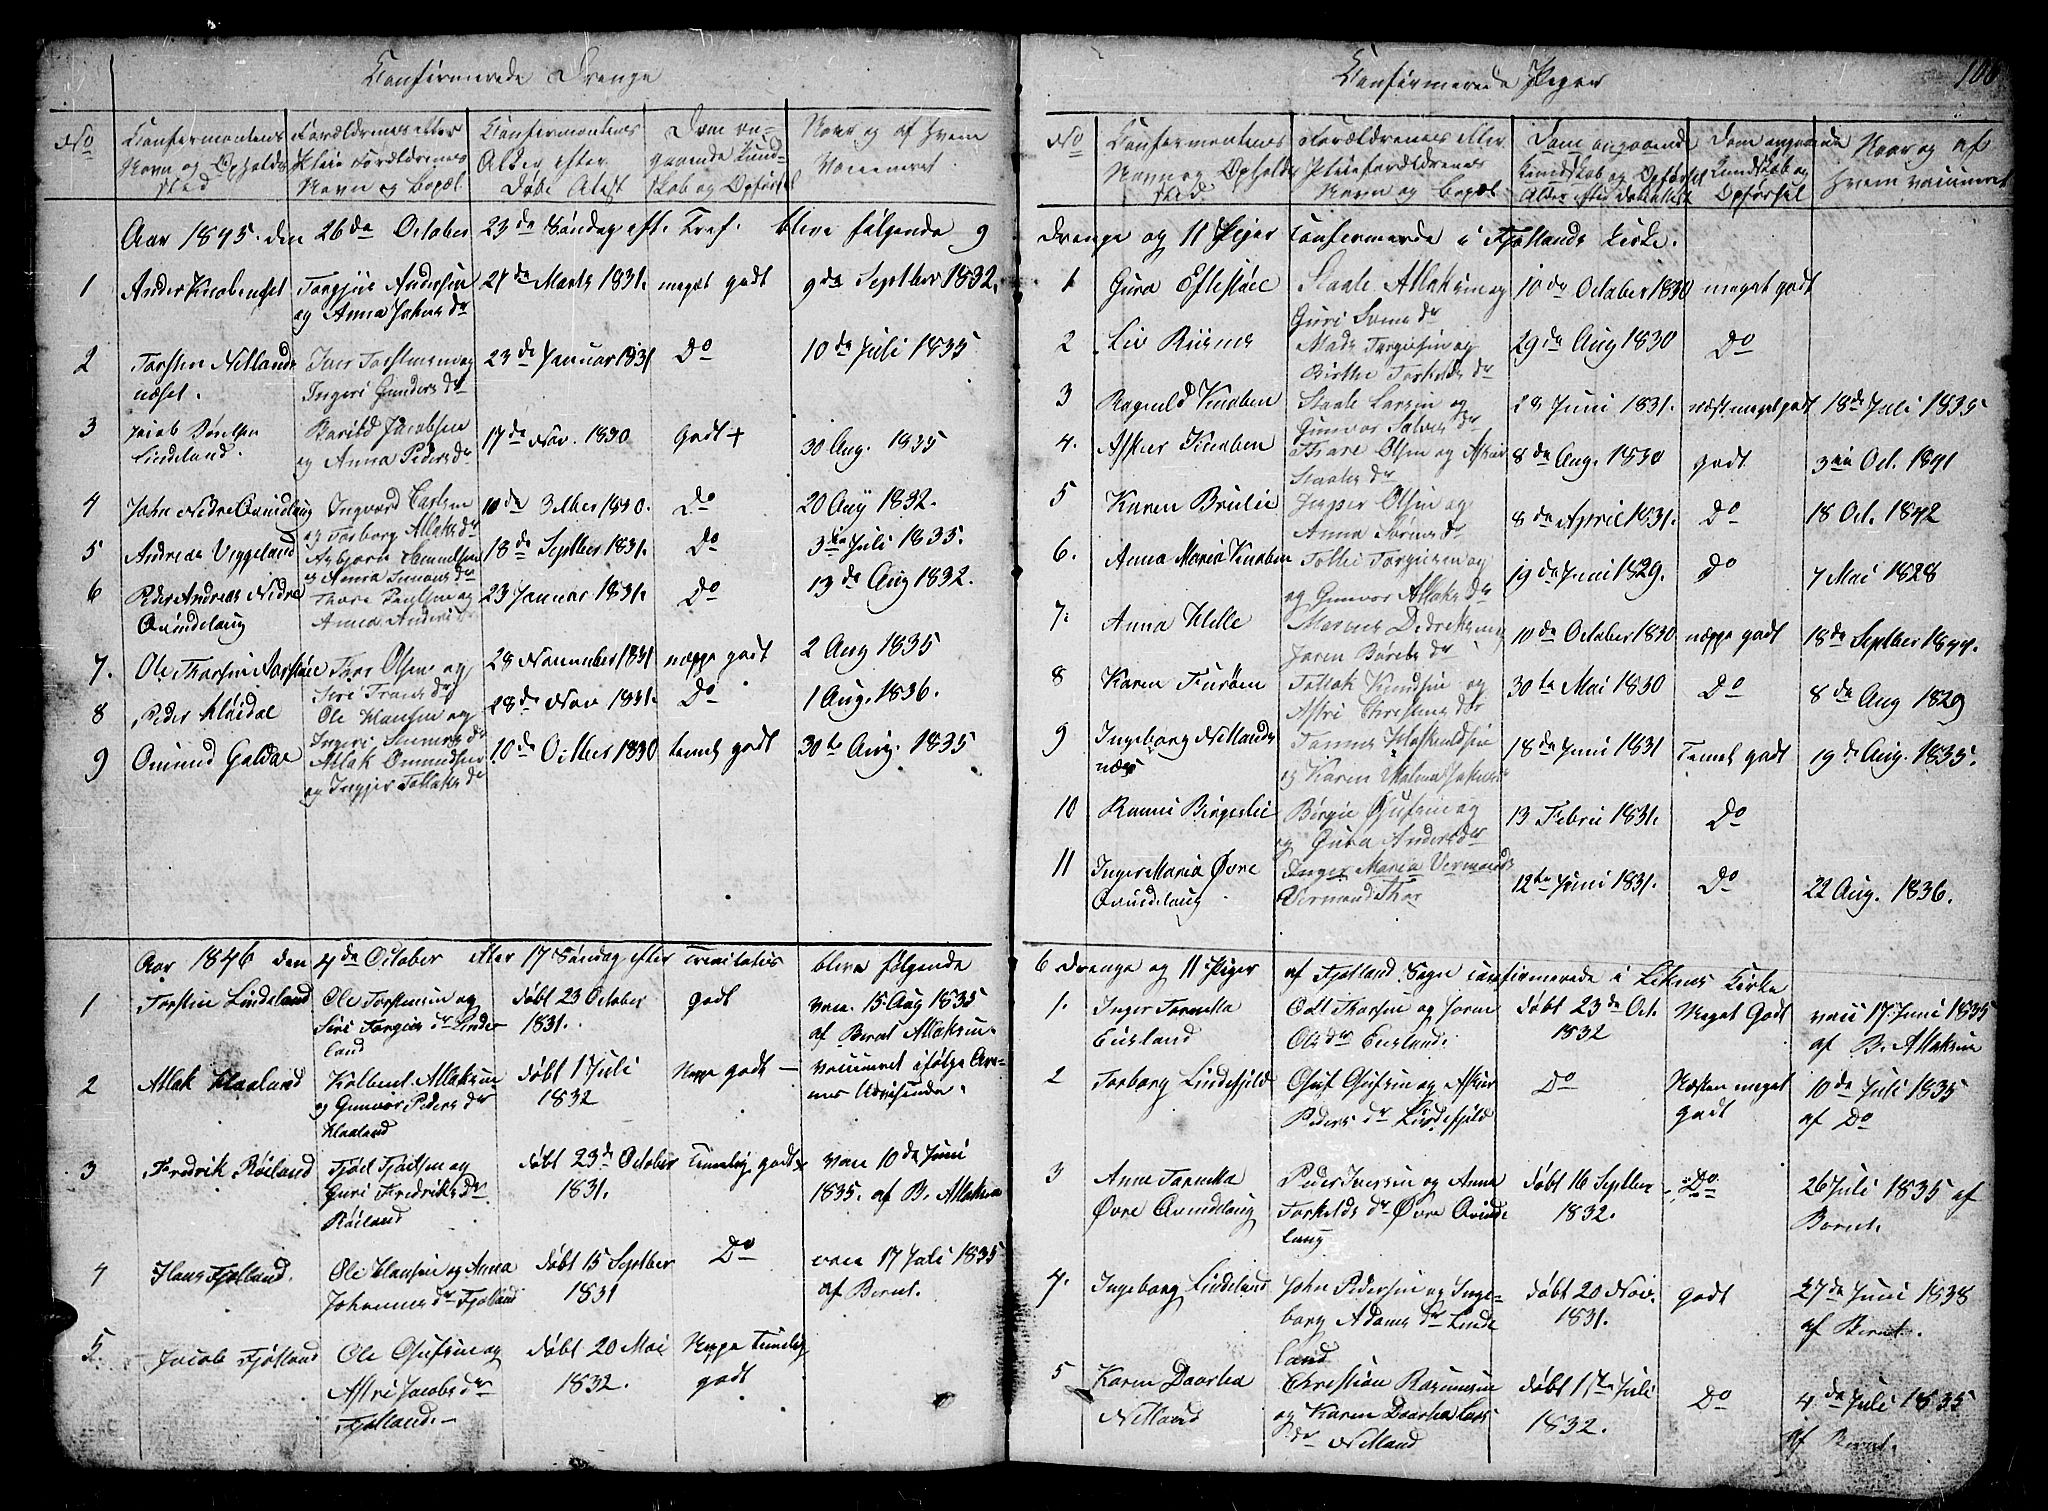 Confirmerede Drenge
No
Confirmantens Navn og Opholds sted
Forældrenes eller Pleie Forældrenes Navn og Bopæl
Confirmantens Alder efter Døbe Atest
Dom angaaende Kundskab og Opførsel
Naar og af hvem Vaccineret
Aar 1845. den 26de October 23de Søndag eft. Tref. bleve følgende 9
1 Ander Knabenset Torgjus Andersen og Anna Jakobs dr 27de Marts 1831. meget godt 9de Septbr 1832.
2 Torsten Netlands næset. Iver Torstensen og Ingeri Gunders dr 23de Januar 1831 Do 10de Juli 1835
3 Jacob Børufsen Lindeland. Baruld Jacobsen og Anna Peders dr 17de Nov. 1830 Godt + 30 Aug. 1835
4 John Nedre Qvindlaug Ingvard Carlsen og Torborg Atlaks dr 10de 3ctber 1830. Do 20 Aug 1832.
5 Andreas Veggeland Asbjørn Omundsen og Anna Simons dr 18de Septber 1831. Do 3die Juli 1835.
6 Peder Andreas Nedre Qvindelaug Thore Paulsen og Anna Anders dr 23 Januar 1831. Do 13de Aug 1832.
7. Ole Thorsen Aastøle Tore Olsen og Siri Frans dr 28 November 1831 neppe godt 2 Aug 1835
8 Peder Kleidal Ole Hansen og Ingeri Siverts dr 28de Nov 1831. Do 1 Aug. 1836.
9 Omund Galdal Atlak Omundsen og Ingjer Tollaks dr 10de Octber 1830 temel godt 30te Aug. 1835
Aar 1846 den 4de October eller 17 Søndag efter Trinitatis bleve følgende
1 Torsten Lindeland Ole Torstensen og Siri Torgius dr Lindeland døbt 23 October 1831. godt vac. 15 Aug 1835 af Bernt Atlaksen.
2 Atlak Haaland Kolbent Atlaksen og Gunvor Peders dr Haaland døbt 17 Juli 1832 Neppe godt – vaccineret ifølge
3 Fredrik Røiland Tjøel Tjøelsen og Guri Fredriks dr Røiland døbt 23de October 1831. Temelig godt vac 10de Juni 1835. af B. Atlaksen
4 Hans Fjotland. Ole Hansen og Anna Johannes dr Fjotland døbt 15 Septber 1831 Do vac 17 Juli 1835 af Bernt.
5. Jacob Fjotland Ole Gufsen og Astri Jacobs dr Fjotland. – døbt 20 Mai 1832. Neppe Temelig godt
Confirmerede Piger
No
Confirmantenes Navn og Opholds sted
Forældrenes eller Pleieforældrenes Navn og Bopæl
Dom angaaend Kundskab og Opførsel Alder efter Døbe Attest
Dom angaaende Kundskab og Opførsel
Naar og af hvem vaccineret
Drenge og 11 Piger confirmerede i Fjotlands Kirke.
1 Gura Eftestøel Staale Atlaksen og Guri Svens dr 10de October 1830 meget godt
2 Liv Risnes Mads Torgersen og Birthe Torkelds dr 29de Aug 1830 Do
3 Ragnild Knaben Staale Larsen og Gunvor Salves dr 28 Juni 1831. næst meget godt 18de Juli 1835
4. Asker Knaben Thore Olsen og Asker Staales dr 8de Aug. 1830 godt 3die Oct. 1841
5 Karen Brulie Jesper Olsen og Anna Sørens dr 8de April 1831. Do 18 Oct. 1842
6. Anna Maria Knaben Tollei Torgiusen og Gunvor Atlaks dr 19de Juni 1829. Do 7 Mai 1828
7. Anna Helle Marcus Didriksen og Joren Børels dr 10de October 1830 neppe godt 18de Septber 1844.
8 Karen Furøen Tollak Knudsen og Astri Christens dr 30te Mai 1830 Do 8de Aug 1829
9 Ingeborg Netlands næs Tomes Haskuldsen og Karen Malena Jakobs 18de Juni 1831 Temel godt 19de Aug. 1835.
10 Ranni Birgeslie Børgie Gufsen og Gura Anders dr 13 Febru 1831. Do
11 Inger Maria Øvre Qvindelaug Inger Maria Vermunds Vermund Thor 12te Juni 1831. Do 22 Aug. 1836.
6 Drenge og 11 Piger af Fjotland Sogn confirmerede i Liknes Kirke
1. Inger Tornetta Eiesland Odt Thorsen og Joren Ols dr Eiesland. døbt 23de Oct. 1832 Meget Godt vacc 17 Juni 1835 af B. Atlaksen
2 Torborg Lindefjeld Gluf Gufsen og Asker Peders dr Lindefjeld Do Næsten meget godt 10de Juli 1835 af Do
3 Anna Tornetta Øvre Qvindlaug Peder Iversen og Anna Torkelds dr Øvre Qvindlaug døbt 16 Septber 1832. Do 26 Juli 1835 af Bernt.
4. Ingeborg Lindeland John Pedersen og Ingeborg Adams dr Lindeland døbt 20 Nov. 1831. godt 27de Juni 1838 af Bernt.
5 Karen Daarthea Netland Christian Rasmusen og Karen Daarthea Lars dr Netland døbt 17de Juli 1832. Do 4de Juli 1835 af Bernt.